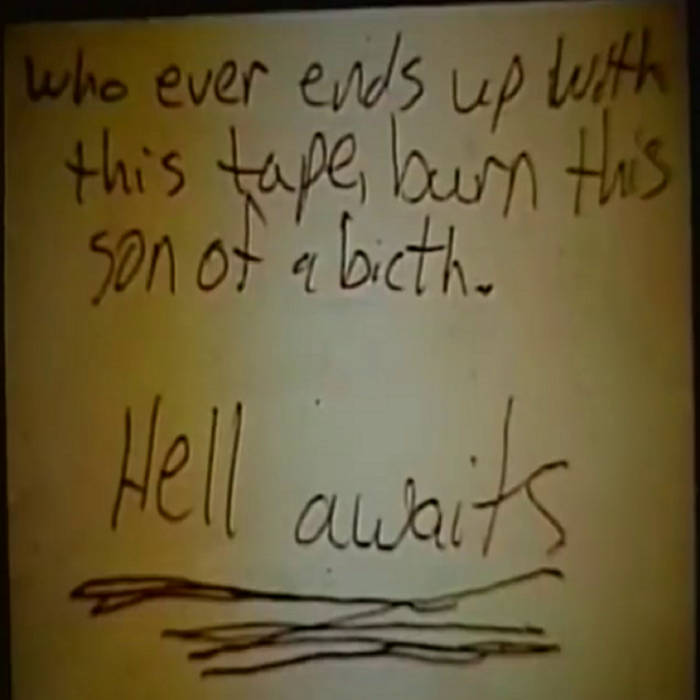 who ever ends up with
this tape, burn this
son of a bicth.
Hell awaits